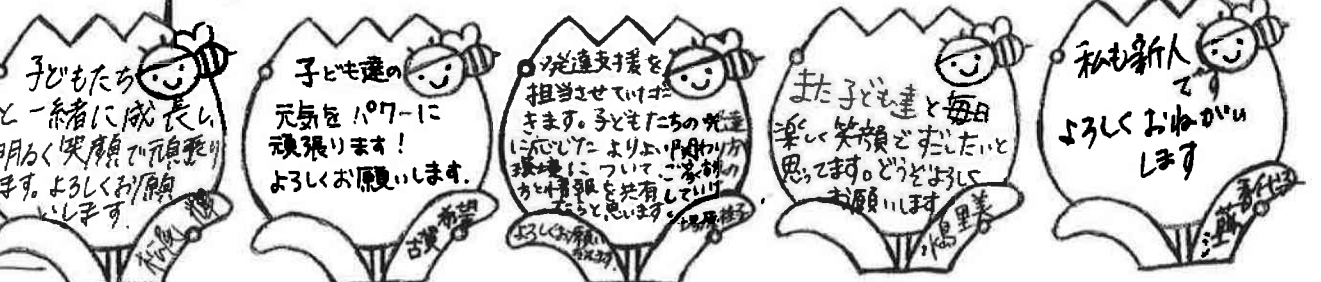 子どもたち
と一緒に成長し
明るく笑顔で頑張り
ます。よろしくお願
いします。
子ども達の
元気をパワーに
頑張ります！
よろしくお願いします.
古賀 希望
発達支援を
担当させていただ
きます。子どもたちの発達
に応じた よりよい関わり方の
環境について、ご家
方と情報を共有していけ
たらと思います。
よろしくお願い
また子ども達と毎日
楽しく笑顔ですごしたいと
思ってます。どうぞよろしく
お願いします
私も新人
です
よろしくおねがい
します